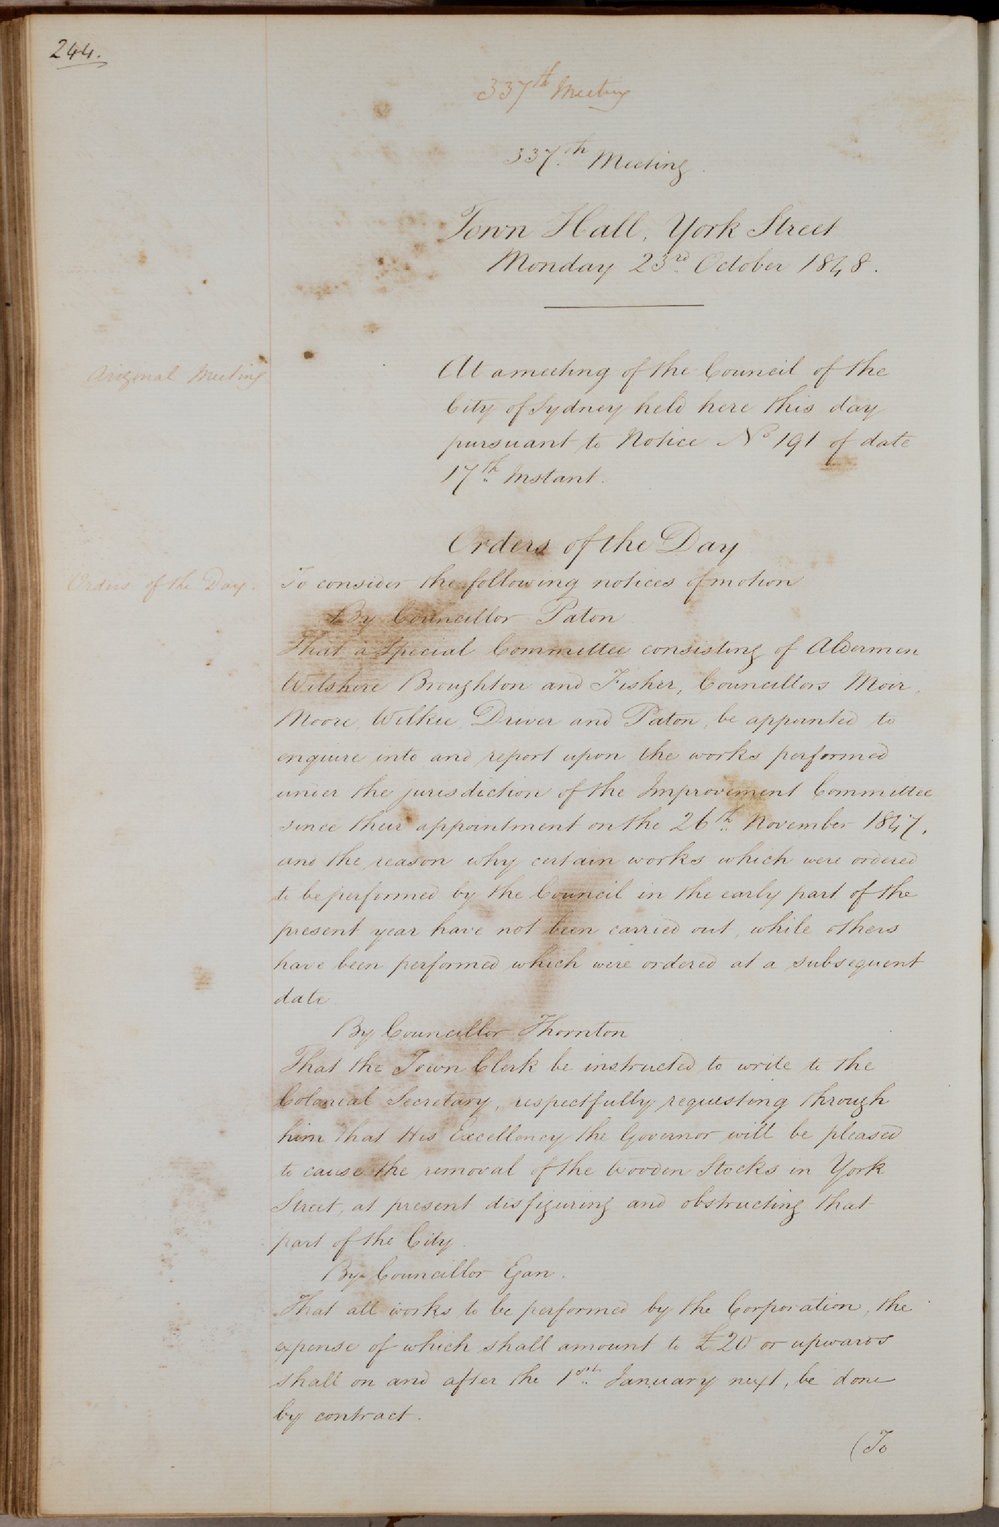 244.
337th Meeting
337.th Meeting.
Town Hall, York Street
Monday 23rd. October 1848.
Original Meeting
At a meeting of the Council of the
City of Sydney held here this day
pursuant to Notice No 191 of date
17th Instant.
Orders of the Day
Orders of the Day.
To consider the following notices of motion
By Councillor Paton
That a Special Committee consisting of Aldermen
Wilshire Broughton and Fisher, Councillors Moir,
Moore Wilkie Driver and Paton, be appointed to
enquire into and report upon the works performed
under the jurisdiction of the Improvement Committee
since their appointment on the 26th November 1847,
and the reason why certain works which were ordered
to be performed by the Council in the early part of the
present year have not been carried out, while others
have been performed which were ordered at a subsequent
date
By Councillor Thornton
That the Town Clerk be instructed to write to the
Colonial Secretary, respectfully requesting through
him that His Excellency the Governor will be pleased
to cause the removal of the Wooden Stocks in York
Street, at present disfiguring and obstructing that
part of the City.
By Councillor Egan.
That all works to be performed by the Corporation, the
expense of which shall amount to £20 or upwards
shall on and after the 1st January next, be done
by contract.
(To